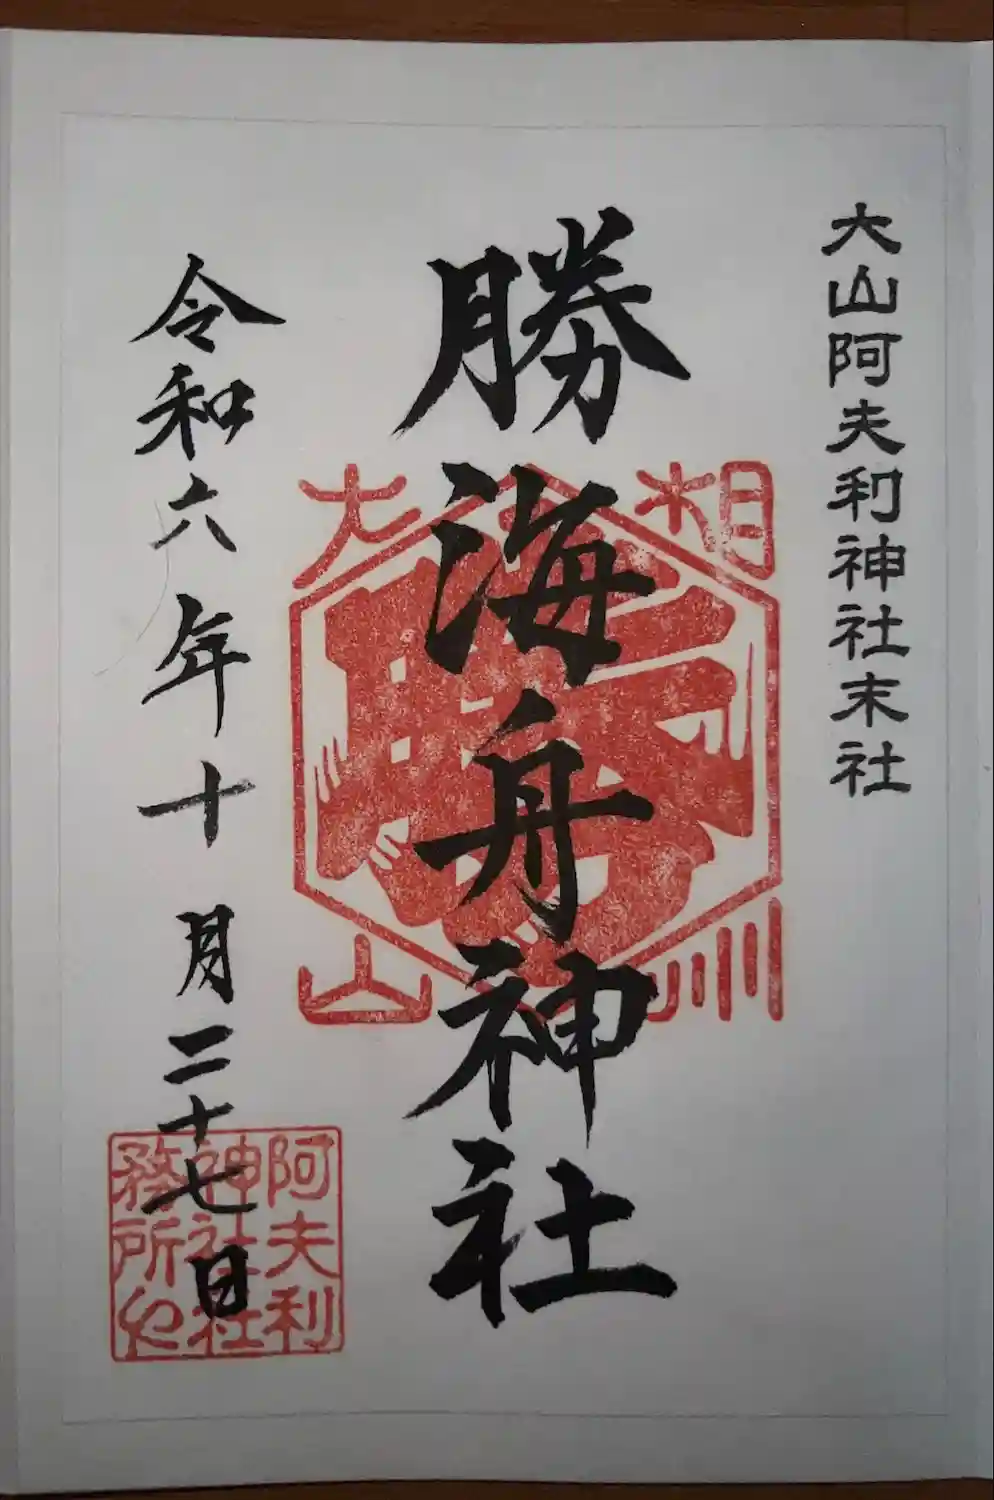 大山阿夫利神社末社
勝海舟神社
相州
大山
勝
令和六年十月二十七日
阿夫利
神社社
務所也